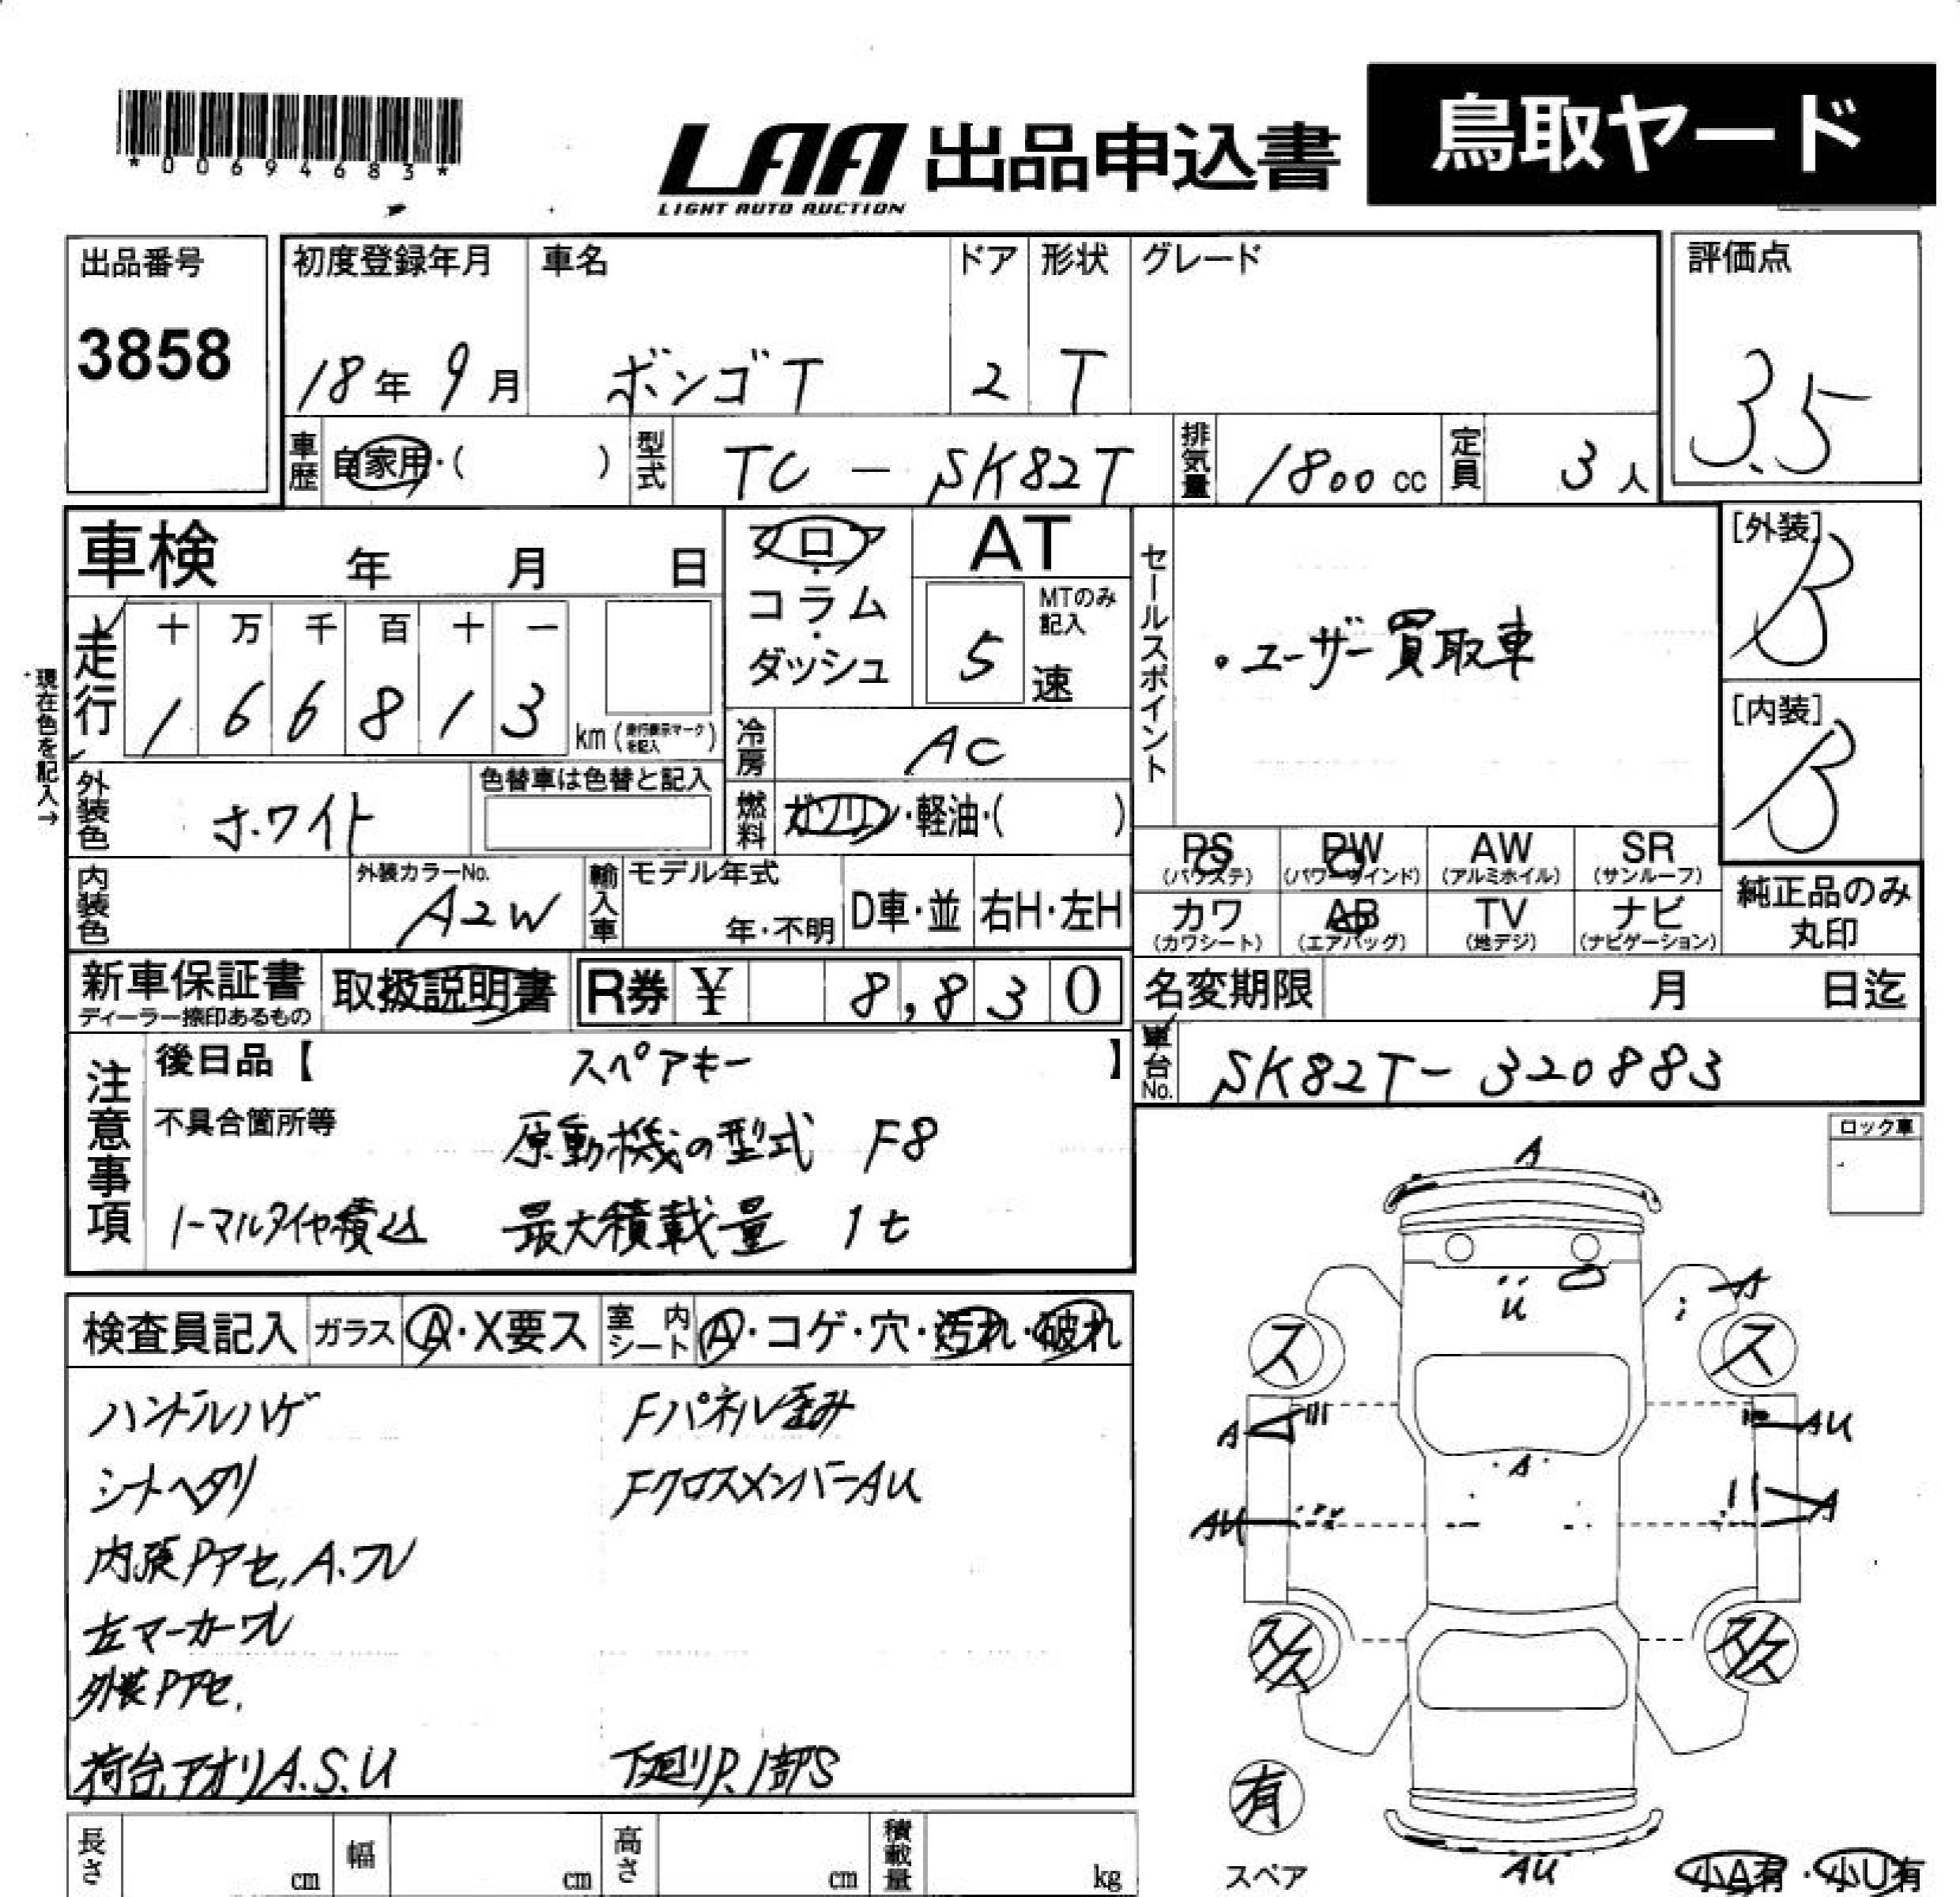 *00694683*
LAA 出品申込書 鳥取ヤード
LIGHT AUTO AUCTION
出品番号 初度登録年月 車名 ドア 形状 グレード 評価点
3858 18年 9月 ボンゴT 2 T 3.5
車歴 自家用・( ) 型式 TC - SK82T 排気量 1800 cc 定員 3人
車検 年 月 日 フロア・コラム・ダッシュ AT
MTのみ記入 5速
セールスポイント ・ユーザー買取車
[外装] B
[内装] B
走行 十 万 千 百 十 一
1 6 6 8 1 3 km (走行表示マークを記入)
現在色を記入→
冷房 AC
外装色 ホワイト 色替車は色替と記入
燃料 ガソリン・軽油・( )
PS (パワステ) PW (パワーウインド) AW (アルミホイル) SR (サンルーフ)
カワ (カワシート) AB (エアバッグ) TV (地デジ) ナビ (ナビゲーション)
純正品のみ丸印
内装色 外装カラーNo. A2W 輸入車 モデル年式 年・不明 D車・並 右H・左H
新車保証書 取扱説明書 R券 ¥ 8,830
ディーラー捺印あるもの
名変期限 月 日迄
車台No. SK82T-320883
注意事項 後日品【 スペアキー 】
不具合箇所等 原動機の型式 F8
ノーマルタイヤ積込 最大積載量 1t
ロック車
検査員記入 ガラス A・X要ス 室内シート A・コゲ・穴・汚れ・破れ
ハンドルハゲ Fパネル歪み
シートヘタリ FクロスメンバーAU
内張Pアセ,A.ワレ
左マーカーワレ
外装Pアセ.
荷台,アオリA.S.U 下廻りP.1部S
A
U
A
ス ス
A AU
A
AU A
スス スス
有
スペア
AU
小A有・小U有
長さ cm 幅 cm 高さ cm 積載量 kg